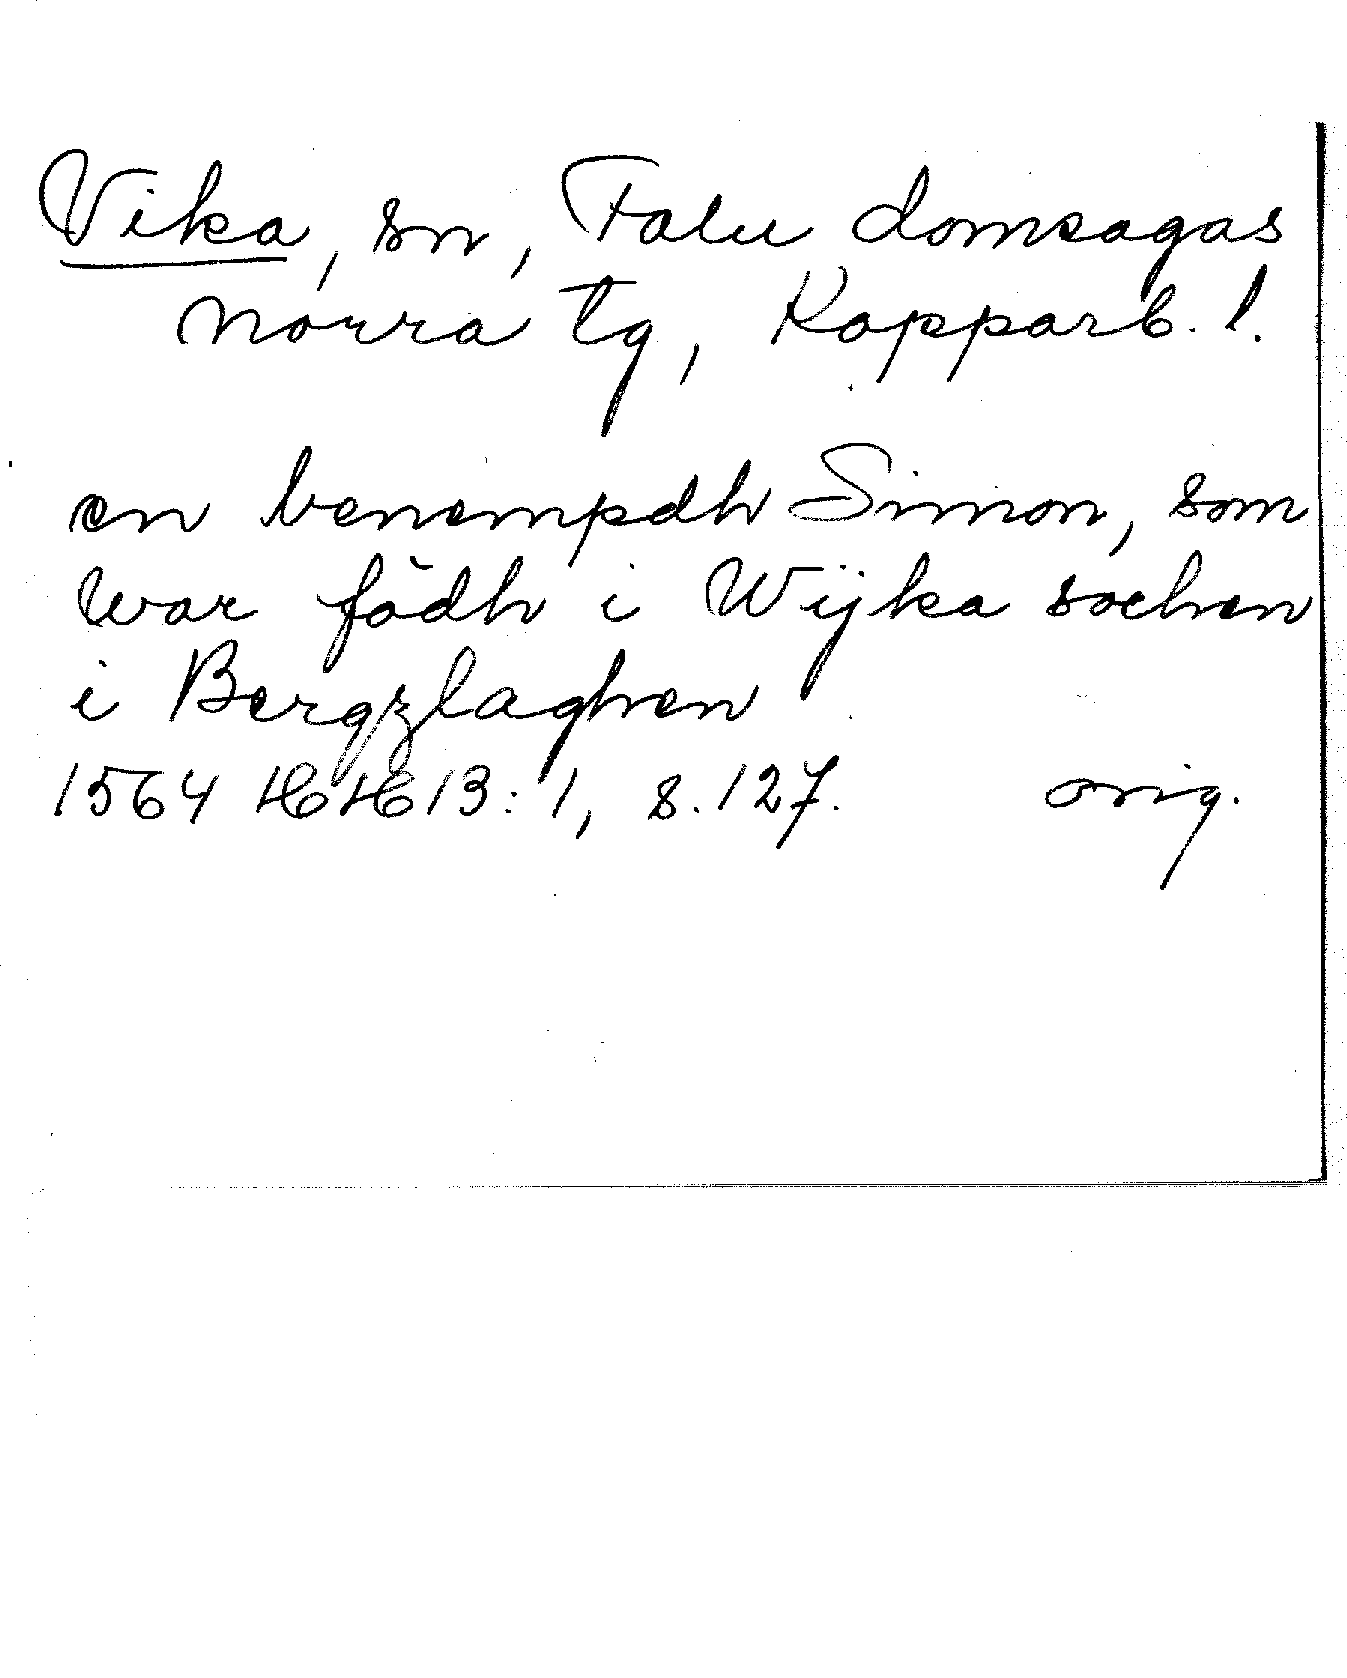 Vika, sn, Falu domsagas
norra tg, Kopparb. l.
en benempdh Simon, som
war födh i Wijka sochen
i Bergzlaghen
1564 HH 13:1, s. 127. orig.